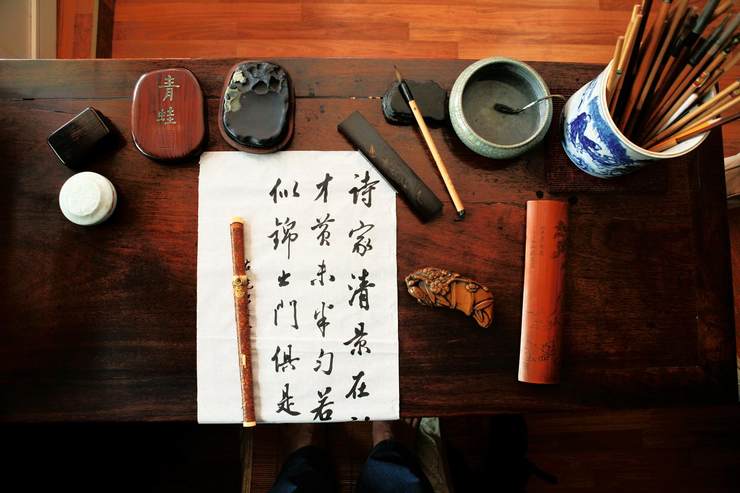 青蛙
诗家清景在
才黄未半匀若
似锦出门俱是